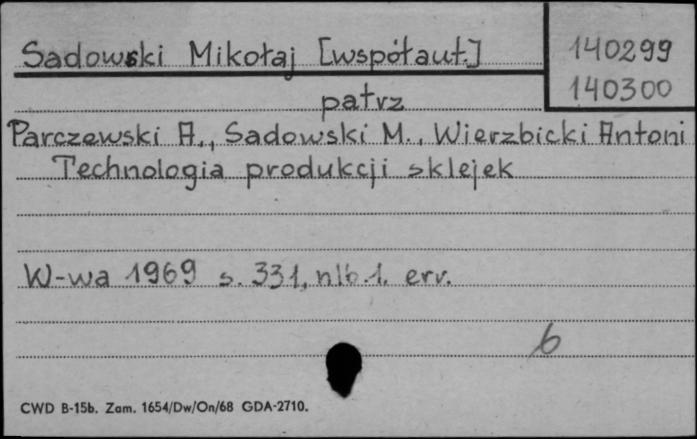 Sadowski Mikołaj [współaut.]
140299
140300
patrz
Parczewski A., Sadowski M., Wierzbicki Antoni
Technologia produkcji sklejek
W-wa 1969 s. 331, nlb. 1. err.
6
CWD B-15b. Zam. 1654/Dw/On/68 GDA-2710.